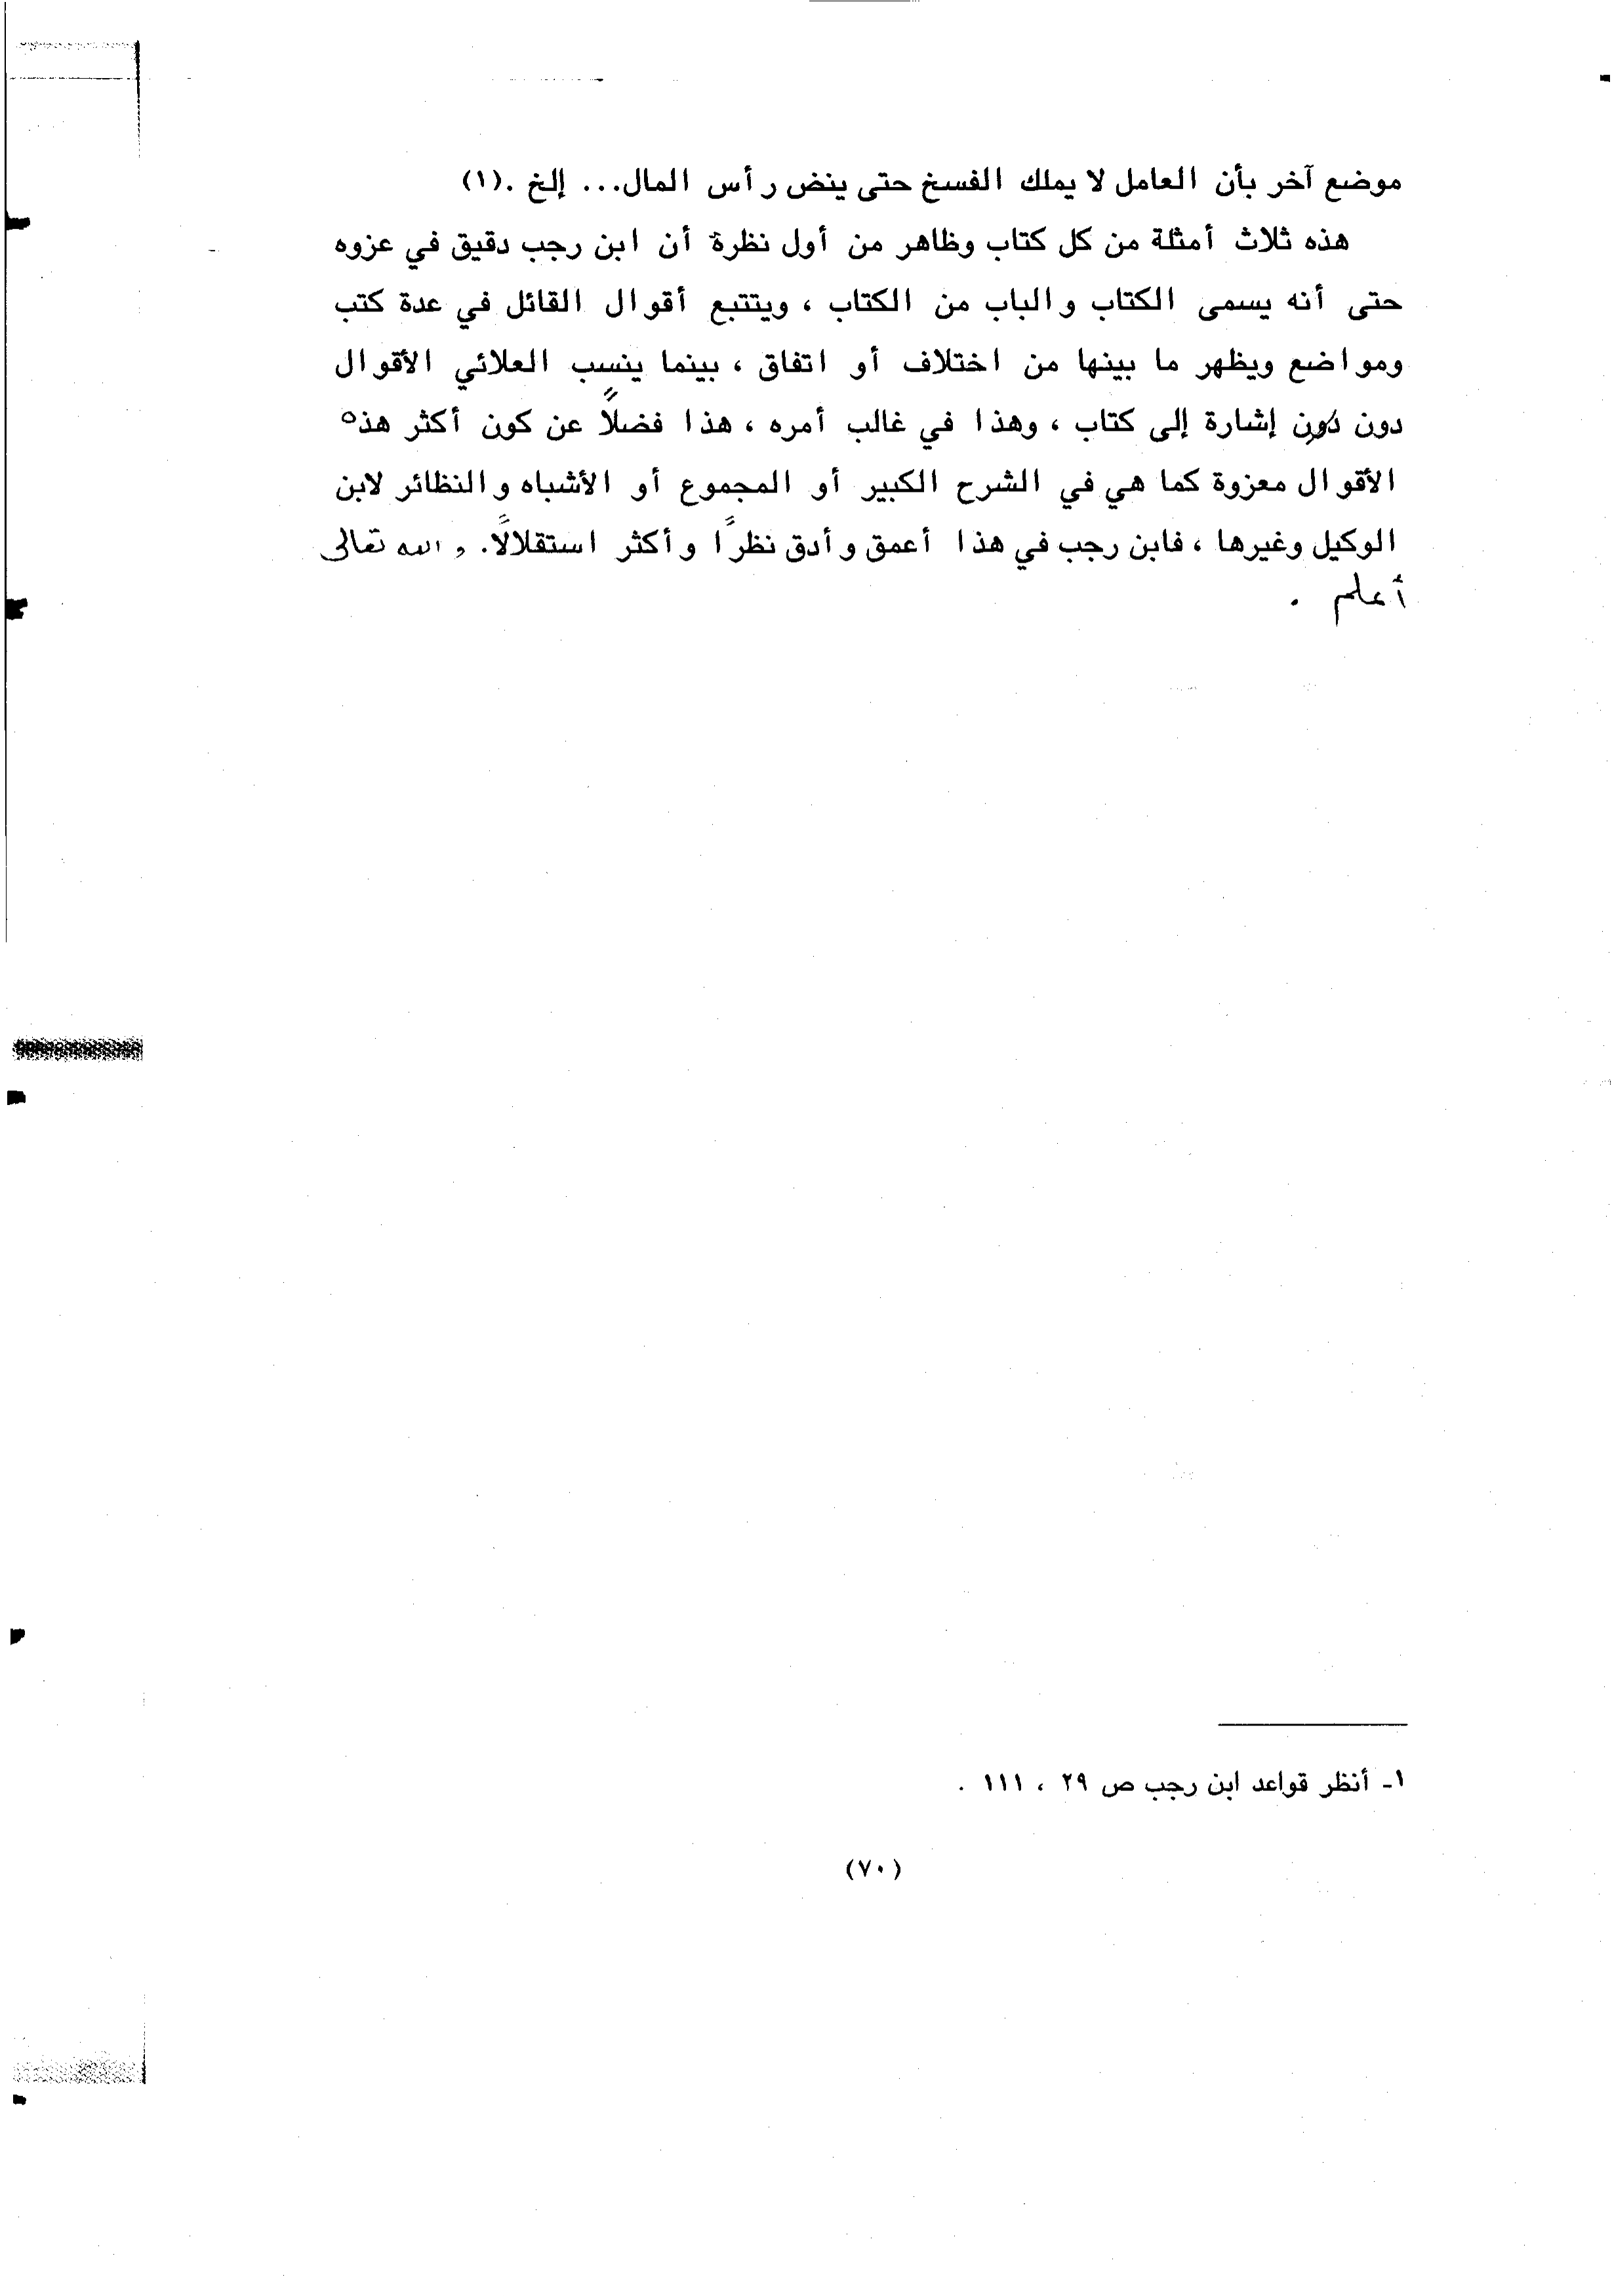 موضع آخر بأن العامل لا يملك الفسخ حتى ينض رأس المال... إلخ .(١)
هذه ثلاث أمثلة من كل كتاب وظاهر من أول نظرة أن ابن رجب دقيق في عزوه
حتى أنه يسمى الكتاب والباب من الكتاب ، ويتتبع أقوال القائل في عدة كتب
ومواضع ويظهر ما بينها من اختلاف أو اتفاق ، بينما ينسب العلائي الأقوال
دون إشارة إلى كتاب ، وهذا في غالب أمره ، هذا فضلاً عن كون أكثر هذه
الأقوال معزوة كما هي في الشرح الكبير أو المجموع أو الأشباه والنظائر لابن
الوكيل وغيرها ، فابن رجب في هذا أعمق وأدق نظراً وأكثر استقلالاً. والله تعالى
أعلم .
١- أنظر قواعد ابن رجب ص ٢٩ ، ١١١ .
(٧٠)